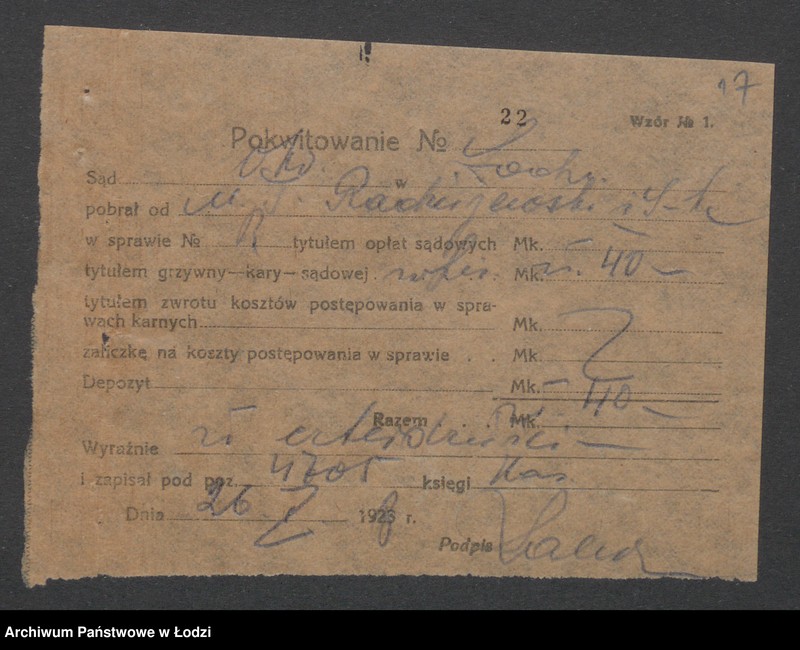 17
22
Wzór № 1.
Pokwitowanie №
Sąd Okr. w Łodzi
pobrał od M. J. i S-ka
w sprawie № tytułem opłat sądowych Mk. —
tytułem grzywny—kary—sądowej Mk. zł. 40 —
tytułem zwrotu kosztów postępowania w spra-
wach karnych Mk.
zaliczkę na koszty postępowania w sprawie . . Mk.
Depozyt Mk. —
Razem . . Mk. 40 —
Wyraźnie zł czterdzieści —
i zapisał pod poz. 4705 księgi Kas.
Dnia 26 V 1926 r.
Podpis
Archiwum Państwowe w Łodzi